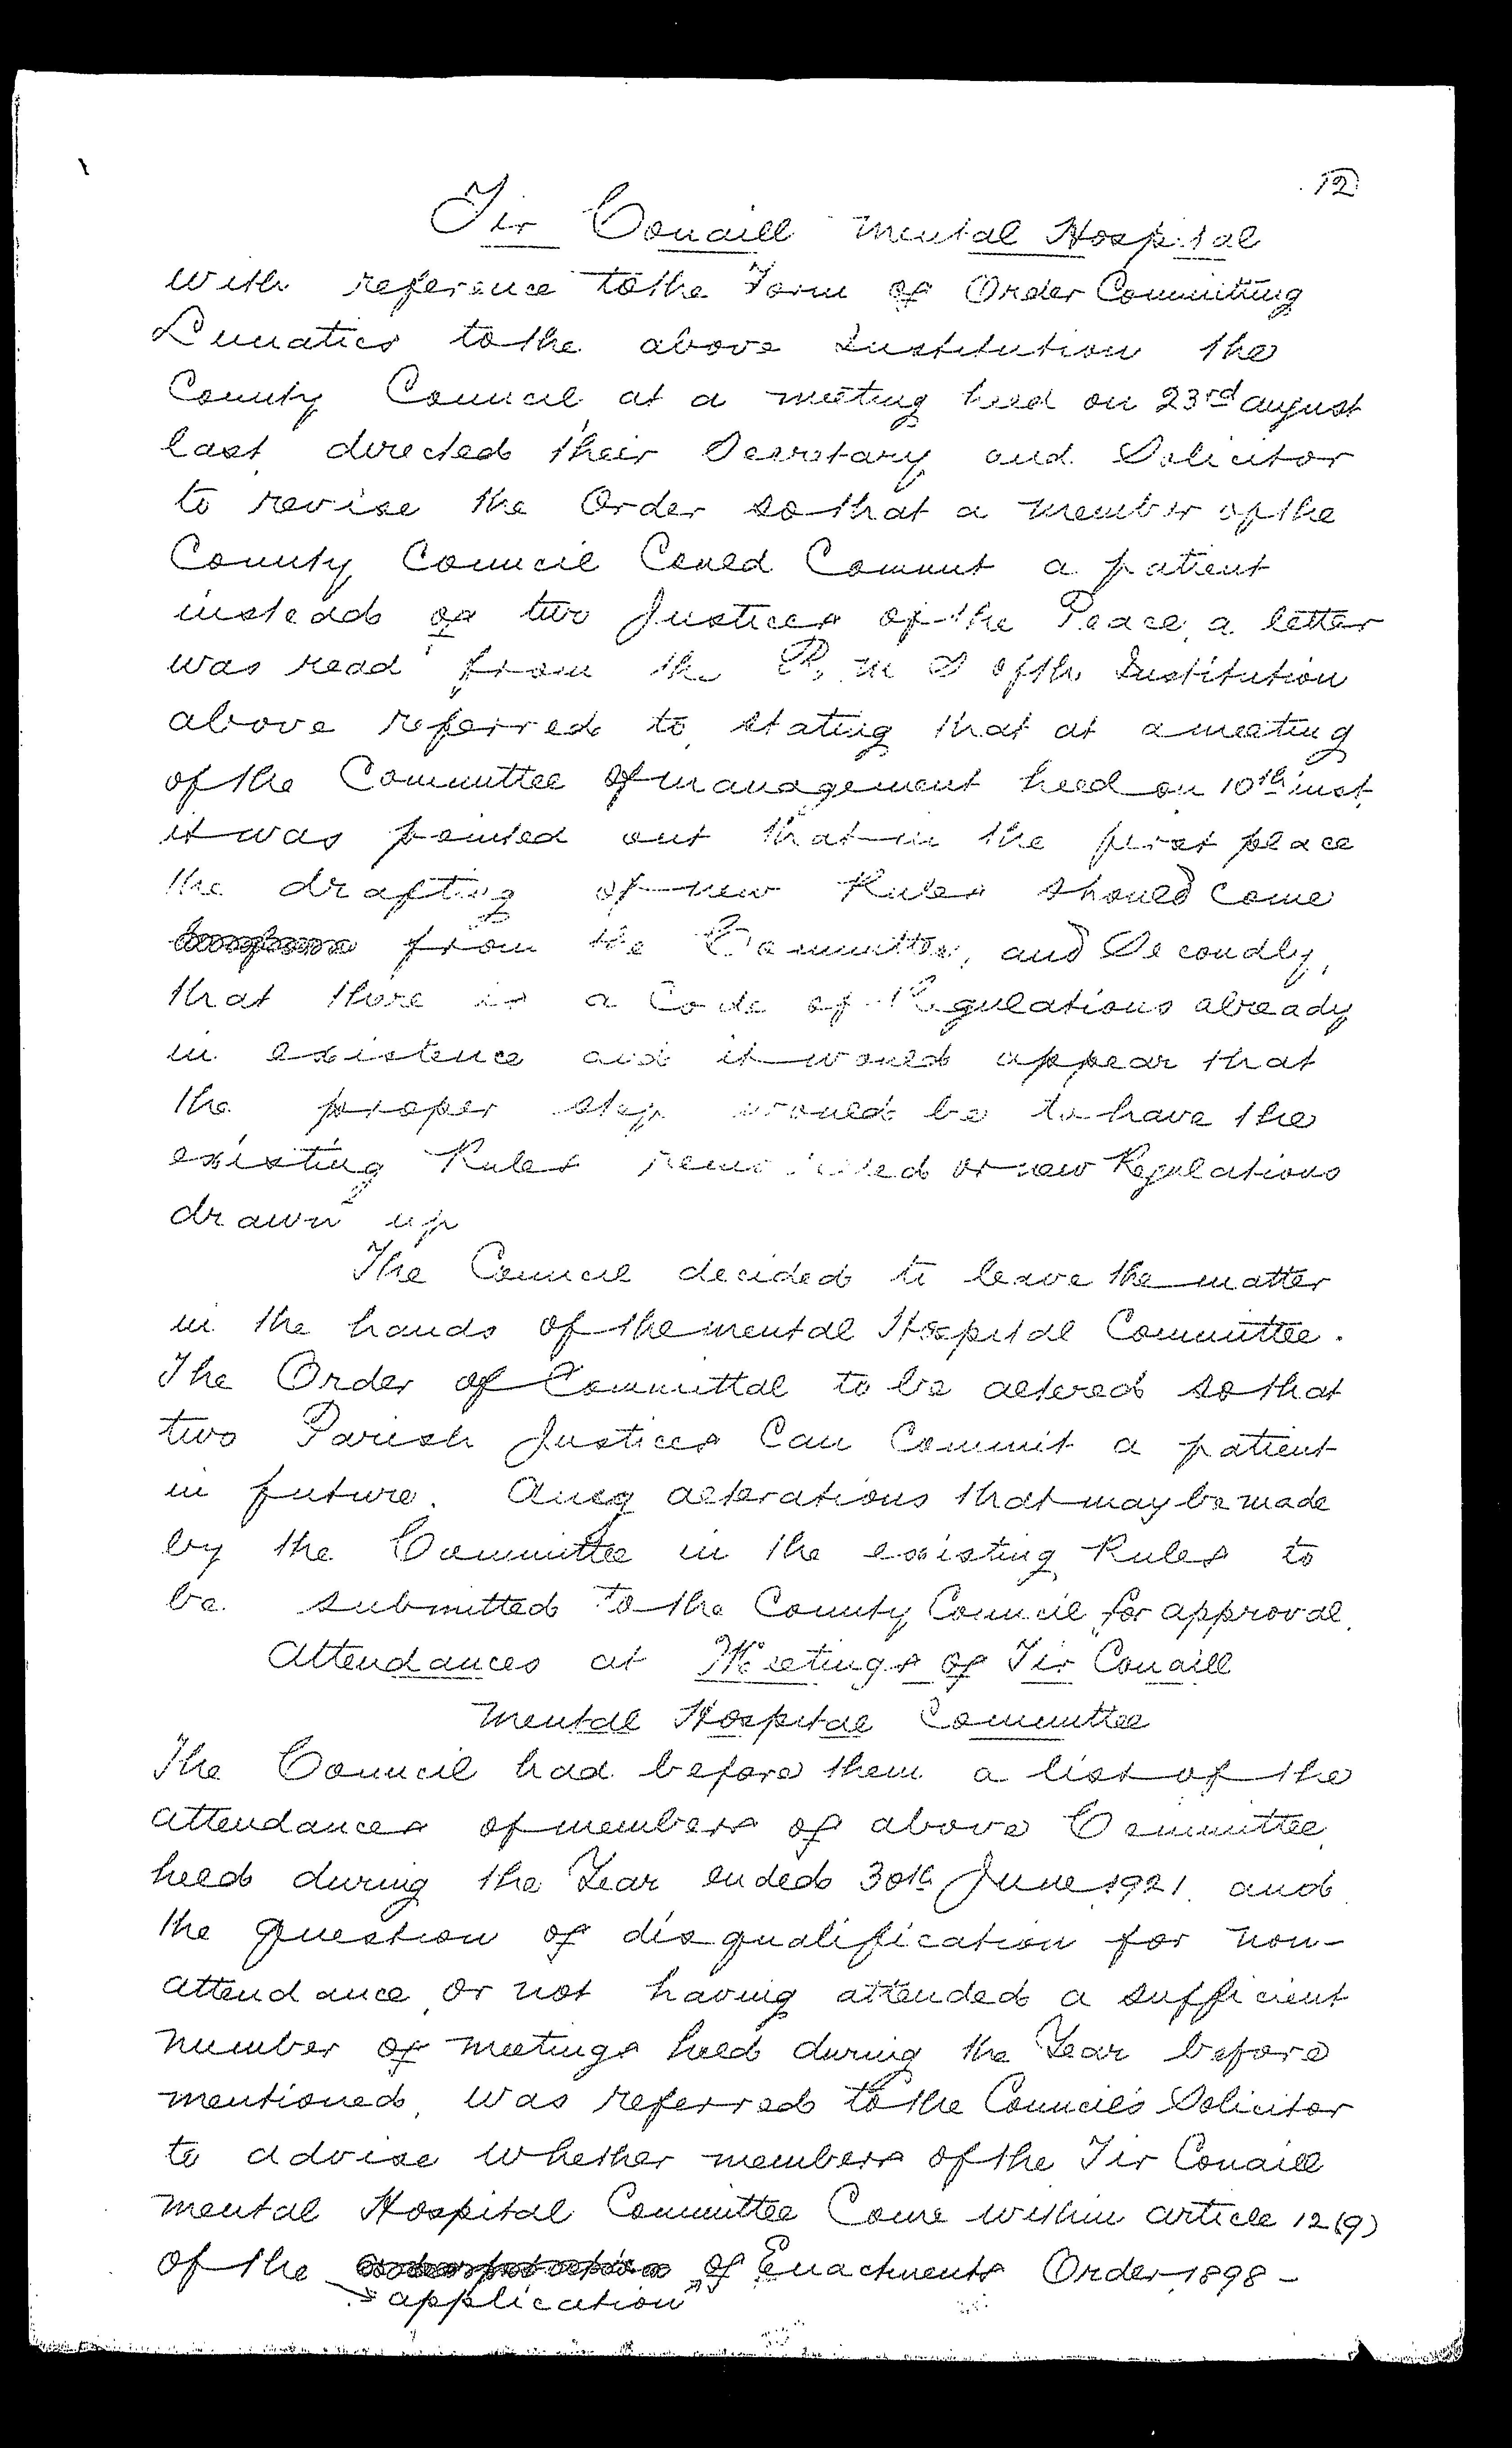 12
Tir Conaill Mental Hospital
With reference to the Form of Order Committing
Lunatics to the above Institution the
County Council, at a meeting held on 23rd august
last, directed their Secretary and Solicitor
to revise the Order so that a member of the
County Council Could Commit a patient
instead of two Justices of the Peace, a letter
was read from the R. M. S of the Institution
above referred to, stating that at a meeting
of the Committee of management held on 10th inst.
it was pointed out that in the first place
the drafting of new Rules should come
from the Committee, and Secondly,
that there is a Code of Regulations already
in existence and it would appear that
the proper step would be to have the
existing Rules or new Regulations
drawn up
The Council decided to leave the matter
in the hands of the mental Hospital Committee.
The Order of Committal to be altered so that
two Parish Justices Can Commit a patient
in future. Any alterations that may be made
by the Committee in the existing Rules to
be submitted to the County Council for approval.
Attendances at Meetings of Tir Conaill
Mental Hospital Committee
The Council had before them a list of the
attendances of members of above Committee
held during the Year ended 30th June 1921 and
the question of disqualification for non-
attendance, or not having attended a sufficient
number of meetings held during the Year before
mentioned, was referred to the Council's Solicitor
to advise whether members of the Tir Conaill
mental Hospital Committee Come within article 12(9)
of the of Enactments Order 1898 -
application